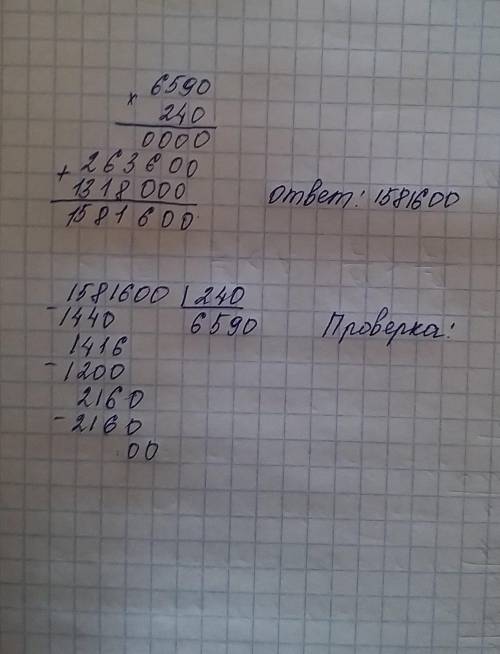 6590
x 240
0000
+ 263600
1318000
1581600
ответ: 1581600
- 1581600 | 240
1440 6590
1416
- 1200
2160
- 2160
00
Проверка: